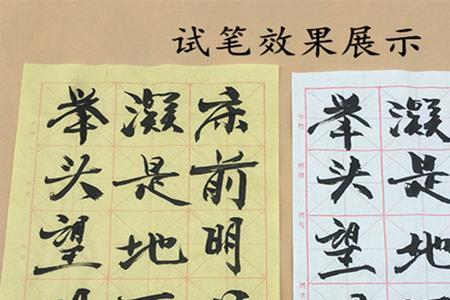 试笔效果展示
床前明
疑是地
举头望
疑是地
举头望